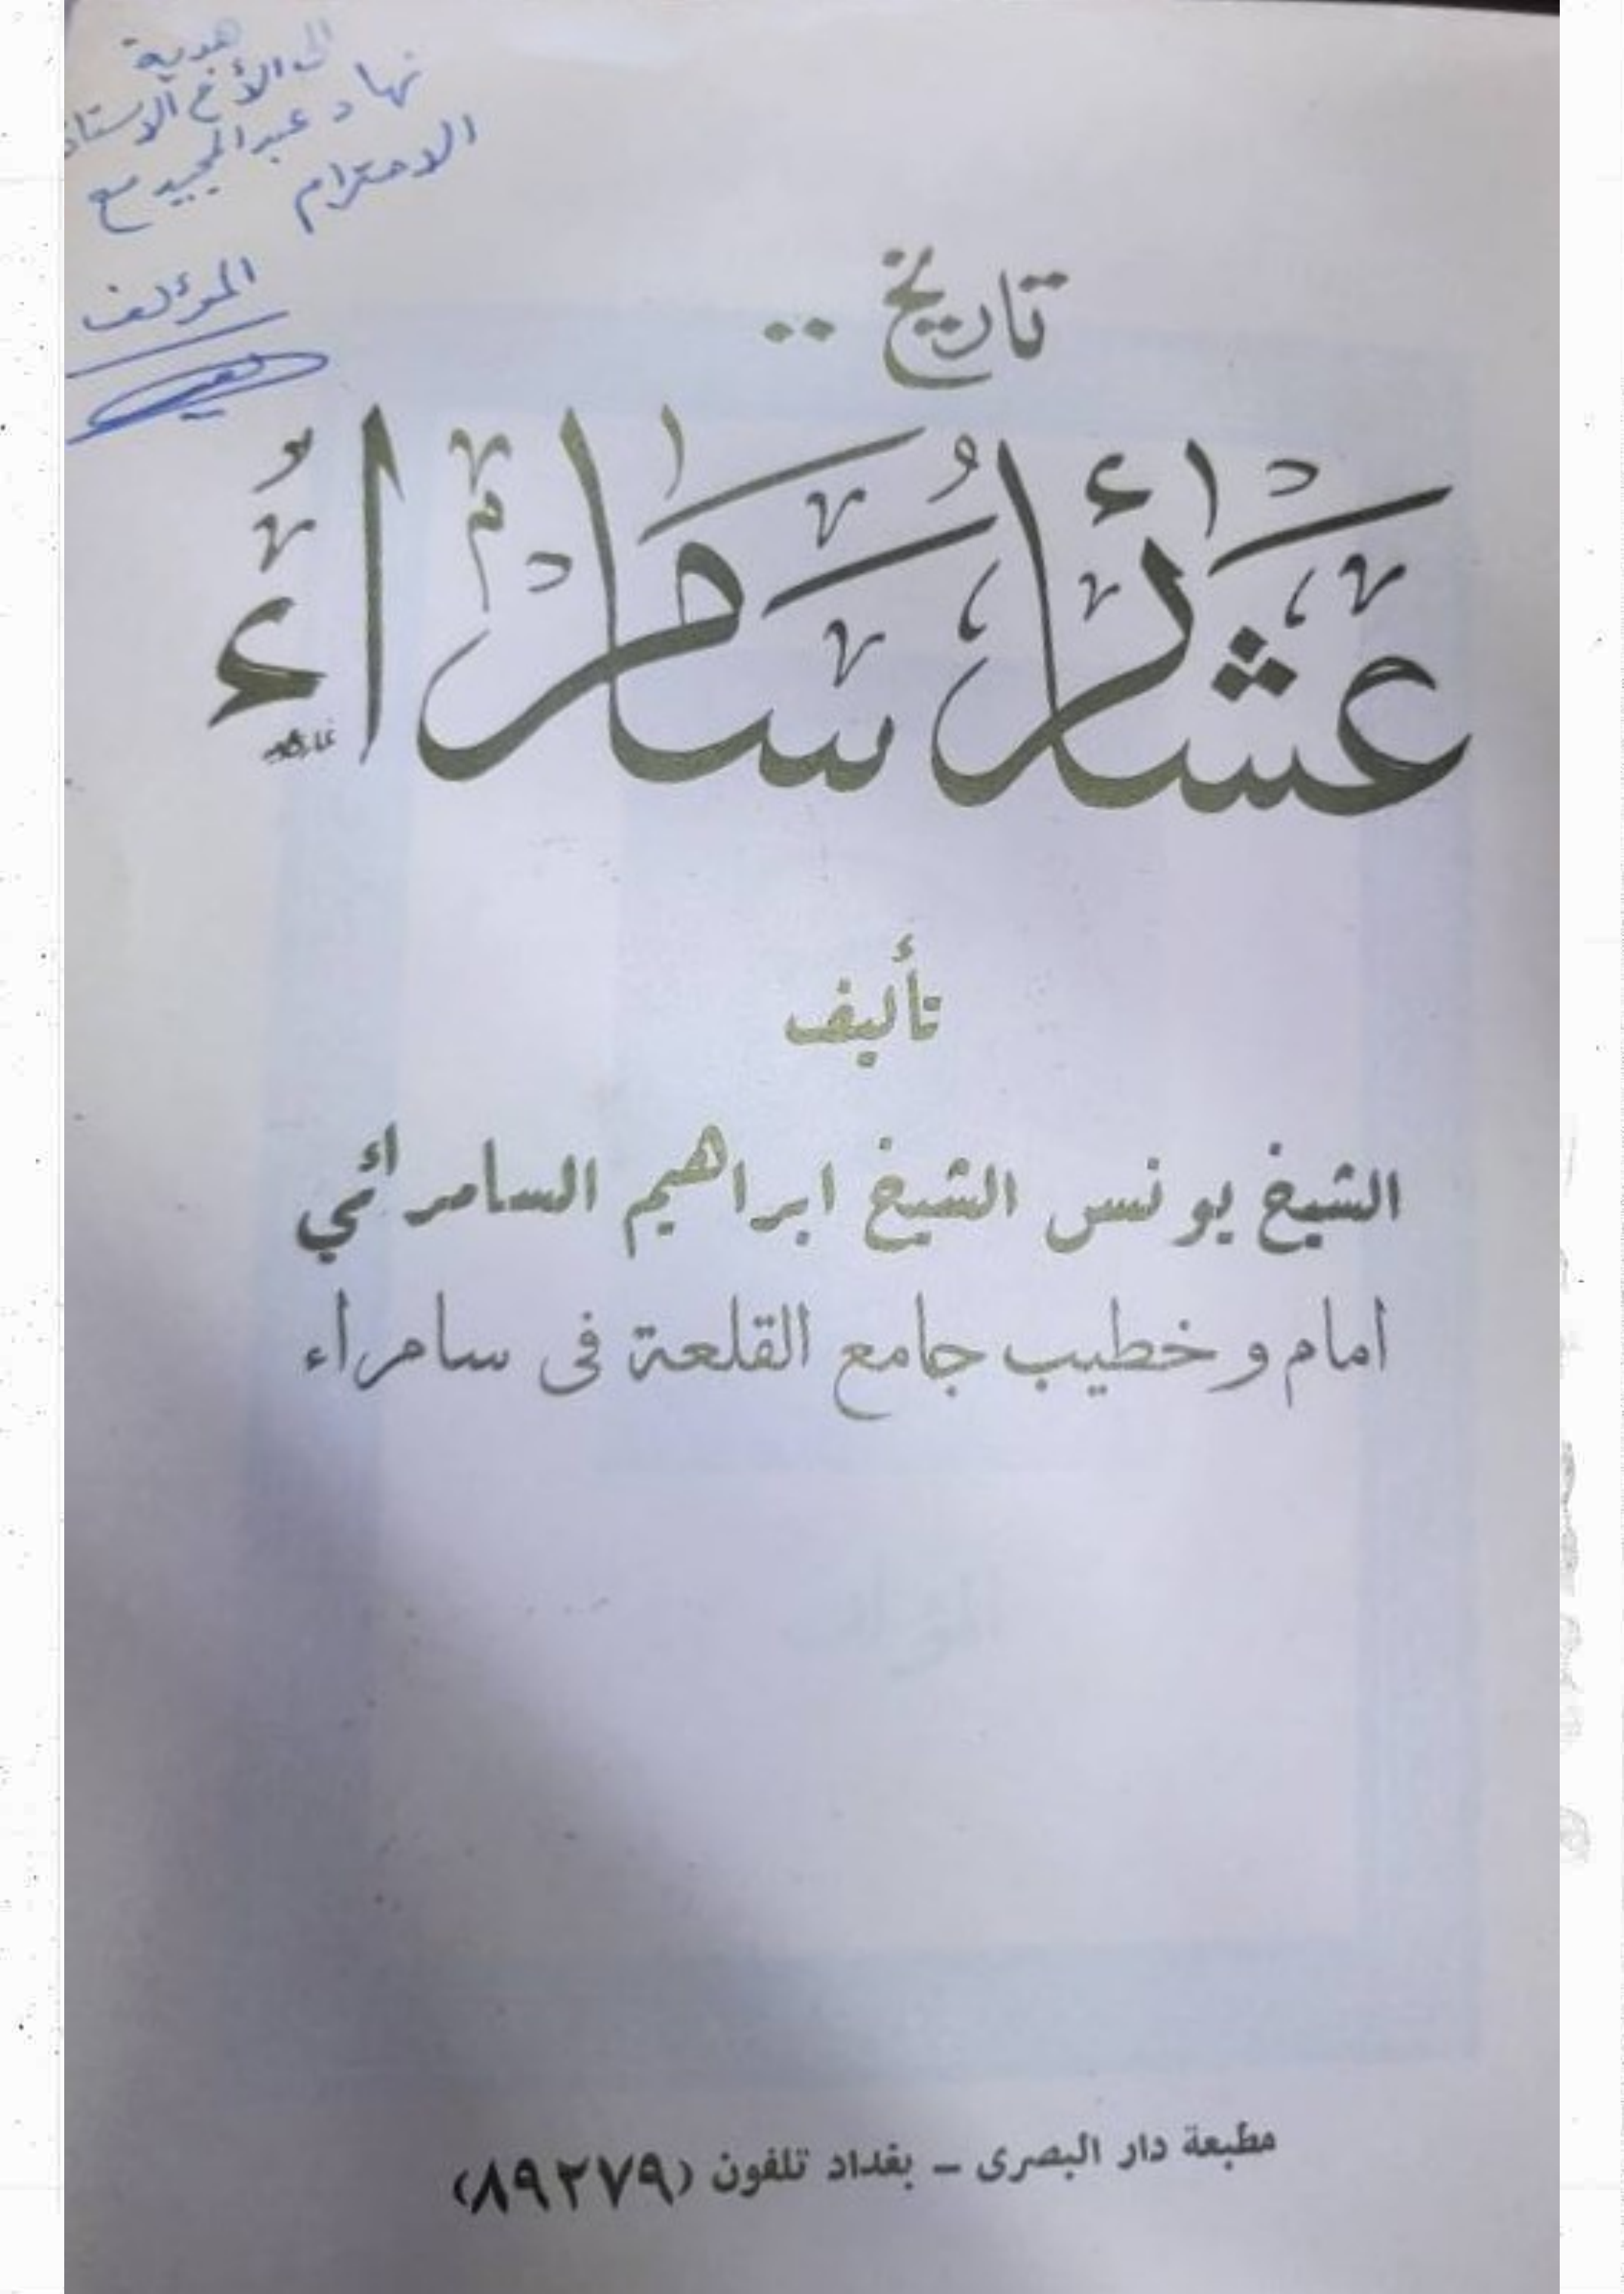 هدية
الى الأخ الاستاذ
نهاد عبدالمجيد مع
الاحترام
المؤلف
تاريخ ..
عشائر سامراء
تأليف
الشيخ يونس الشيخ ابراهيم السامرائي
امام وخطيب جامع القلعة فى سامراء
مطبعة دار البصرى – بغداد تلفون (٨٩٢٧٩)